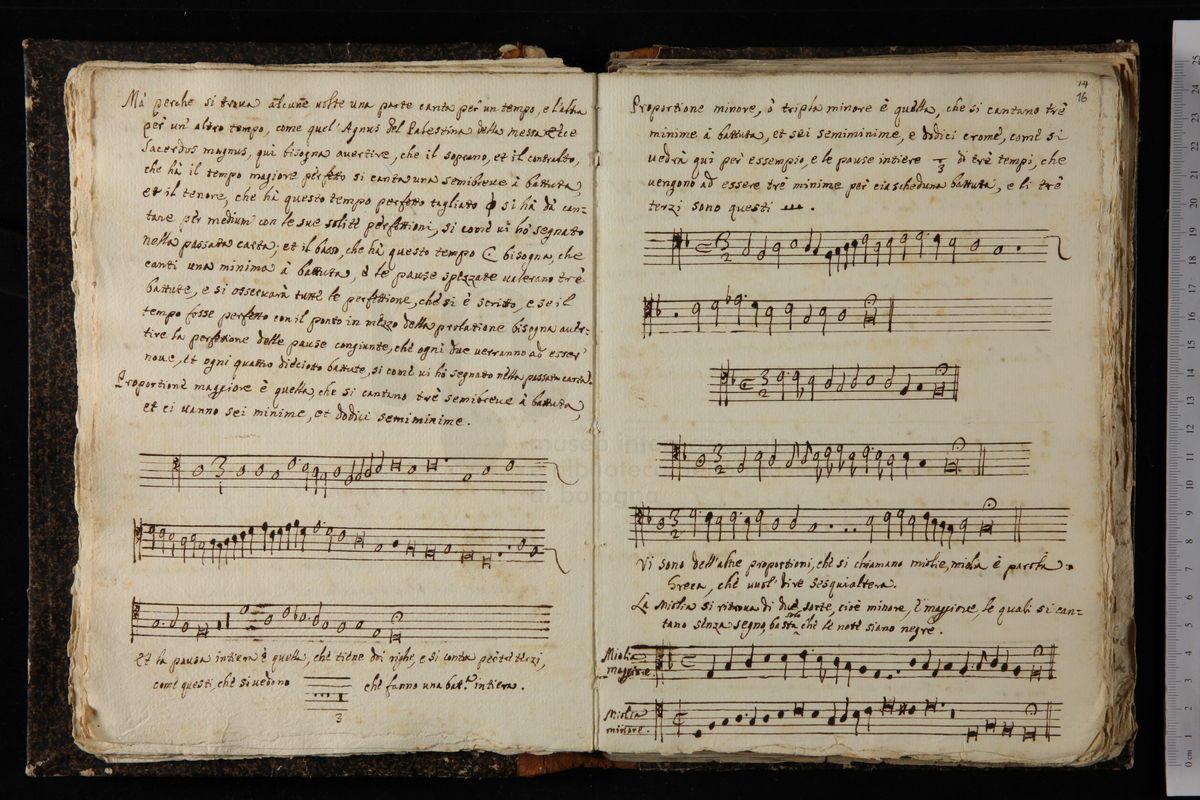 Mà perche si trova alcune volte una parte canta per un tempo, e l'altra
per un' altro tempo, come quel' Agnus del Palestina della messa Ecce
Sacerdos magnus, qui bisogna avertire, che il soprano, et il contralto,
che hà il tempo magiore perfetto si canta una semibreve à battuta,
et il tenore, che hà questo tempo perfetto tagliato si hà dà can=
tare per medium con le sue solite perfettioni, si come vi hò segnato
nella passata carta; et il basso, che hà questo tempo C bisogna, che
canti una minima à battuta, è le pause spezzate valerano tre
battute, e si osservarà tutte le perfettione, che si è scritto, e se il
tempo fosse perfetto con il ponto in mezzo della prolatione bisogna aver=
tire la perfetione delle pause congiunte, che ogni due verranno ad esser
nove, et ogni quattro dicioto battute, si come vi hò segnato nella passata carta.
Proportione maggiore è quella, che si cantano tre semibreve à battuta,
et ci vanno sei minime, et dodici semiminime.
3
1
Et la pausa intiera è quella, che tiene doi righe, e si conta per tre terzi,
come questi, che si vedono che fanno una bat.ª intiera.
3
14
16
Proportione minore, ò tripla minore è quella, che si cantano tre
minime à battuta, et sei semiminime, e dodici crome, come si
vedrà qui per essempio, e le pause intiere 3 di tre tempi, che
vengono ad essere tre minime per ciascheduna battuta, e li tre
terzi sono questi
3
2
3
2
3
2
3
2
Vi sono dell'altre proportioni, che si chiamano miolie, miolia è parola
Greca, che vuol' dire sesquialtera.
La Miolia si ritrova di due sorte, cioè minore, è maggiore, le quali si can=
tano senza segno, basta solo che le note siano negre.
Miolia
maggiore
Miolia
minore.